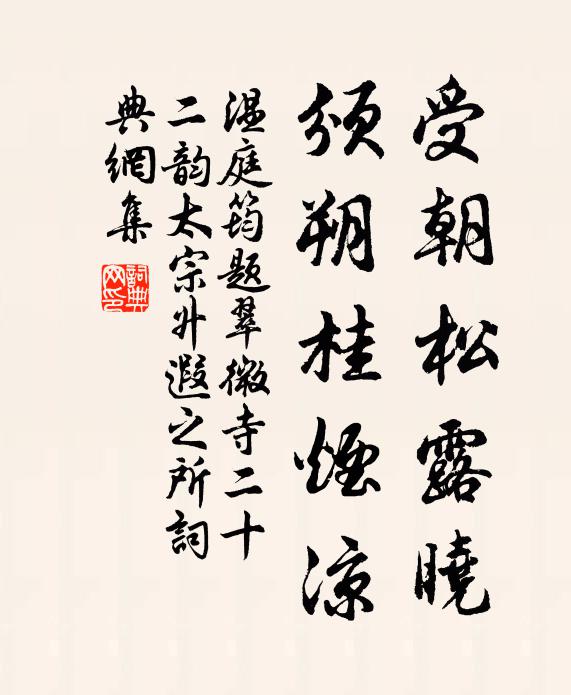 受朝松露曉
頒朔桂煙涼
溫庭筠題翠微寺二十
二韵太宗升遐之所詞
典網集
詞典網印